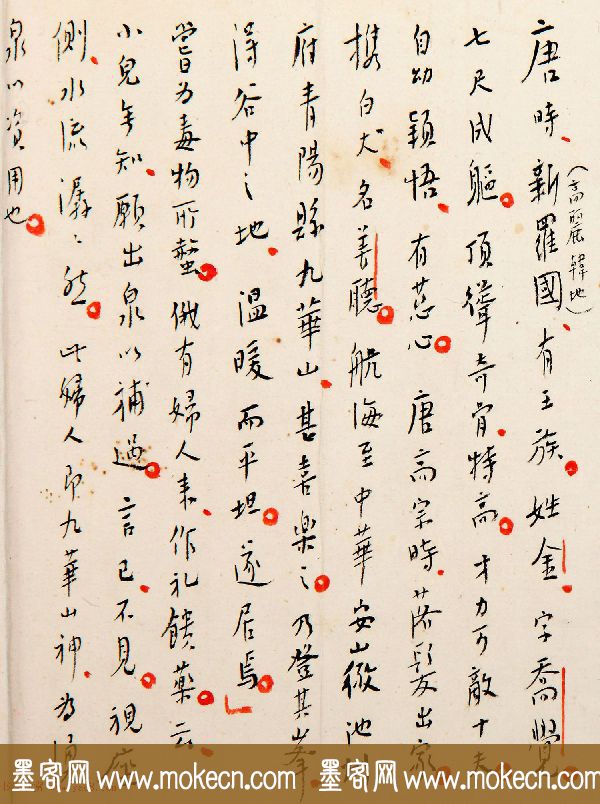 唐時、新羅國、有王族。姓金、字喬覺
(高麗韓地)
七尺成軀。頂聳奇骨、特高。才力可敵十夫
自幼穎悟、有慈心。唐高宗時、落髮出家
携白犬、名善聽。航海至中華安山徽池
府青陽縣九華山、甚喜樂之。乃登其峯、
得谷中之地、溫暖而平坦。遂居焉」
嘗為毒物所螫。俄有婦人來、作礼饋藥。云、
小兒無知、願出泉以補過。言已、不見。視座
側、水流潺〻然。此婦人即九華山神、為湧
泉以資用也。
墨客网 www.mokecn.com 墨客网 www.mokecn.com